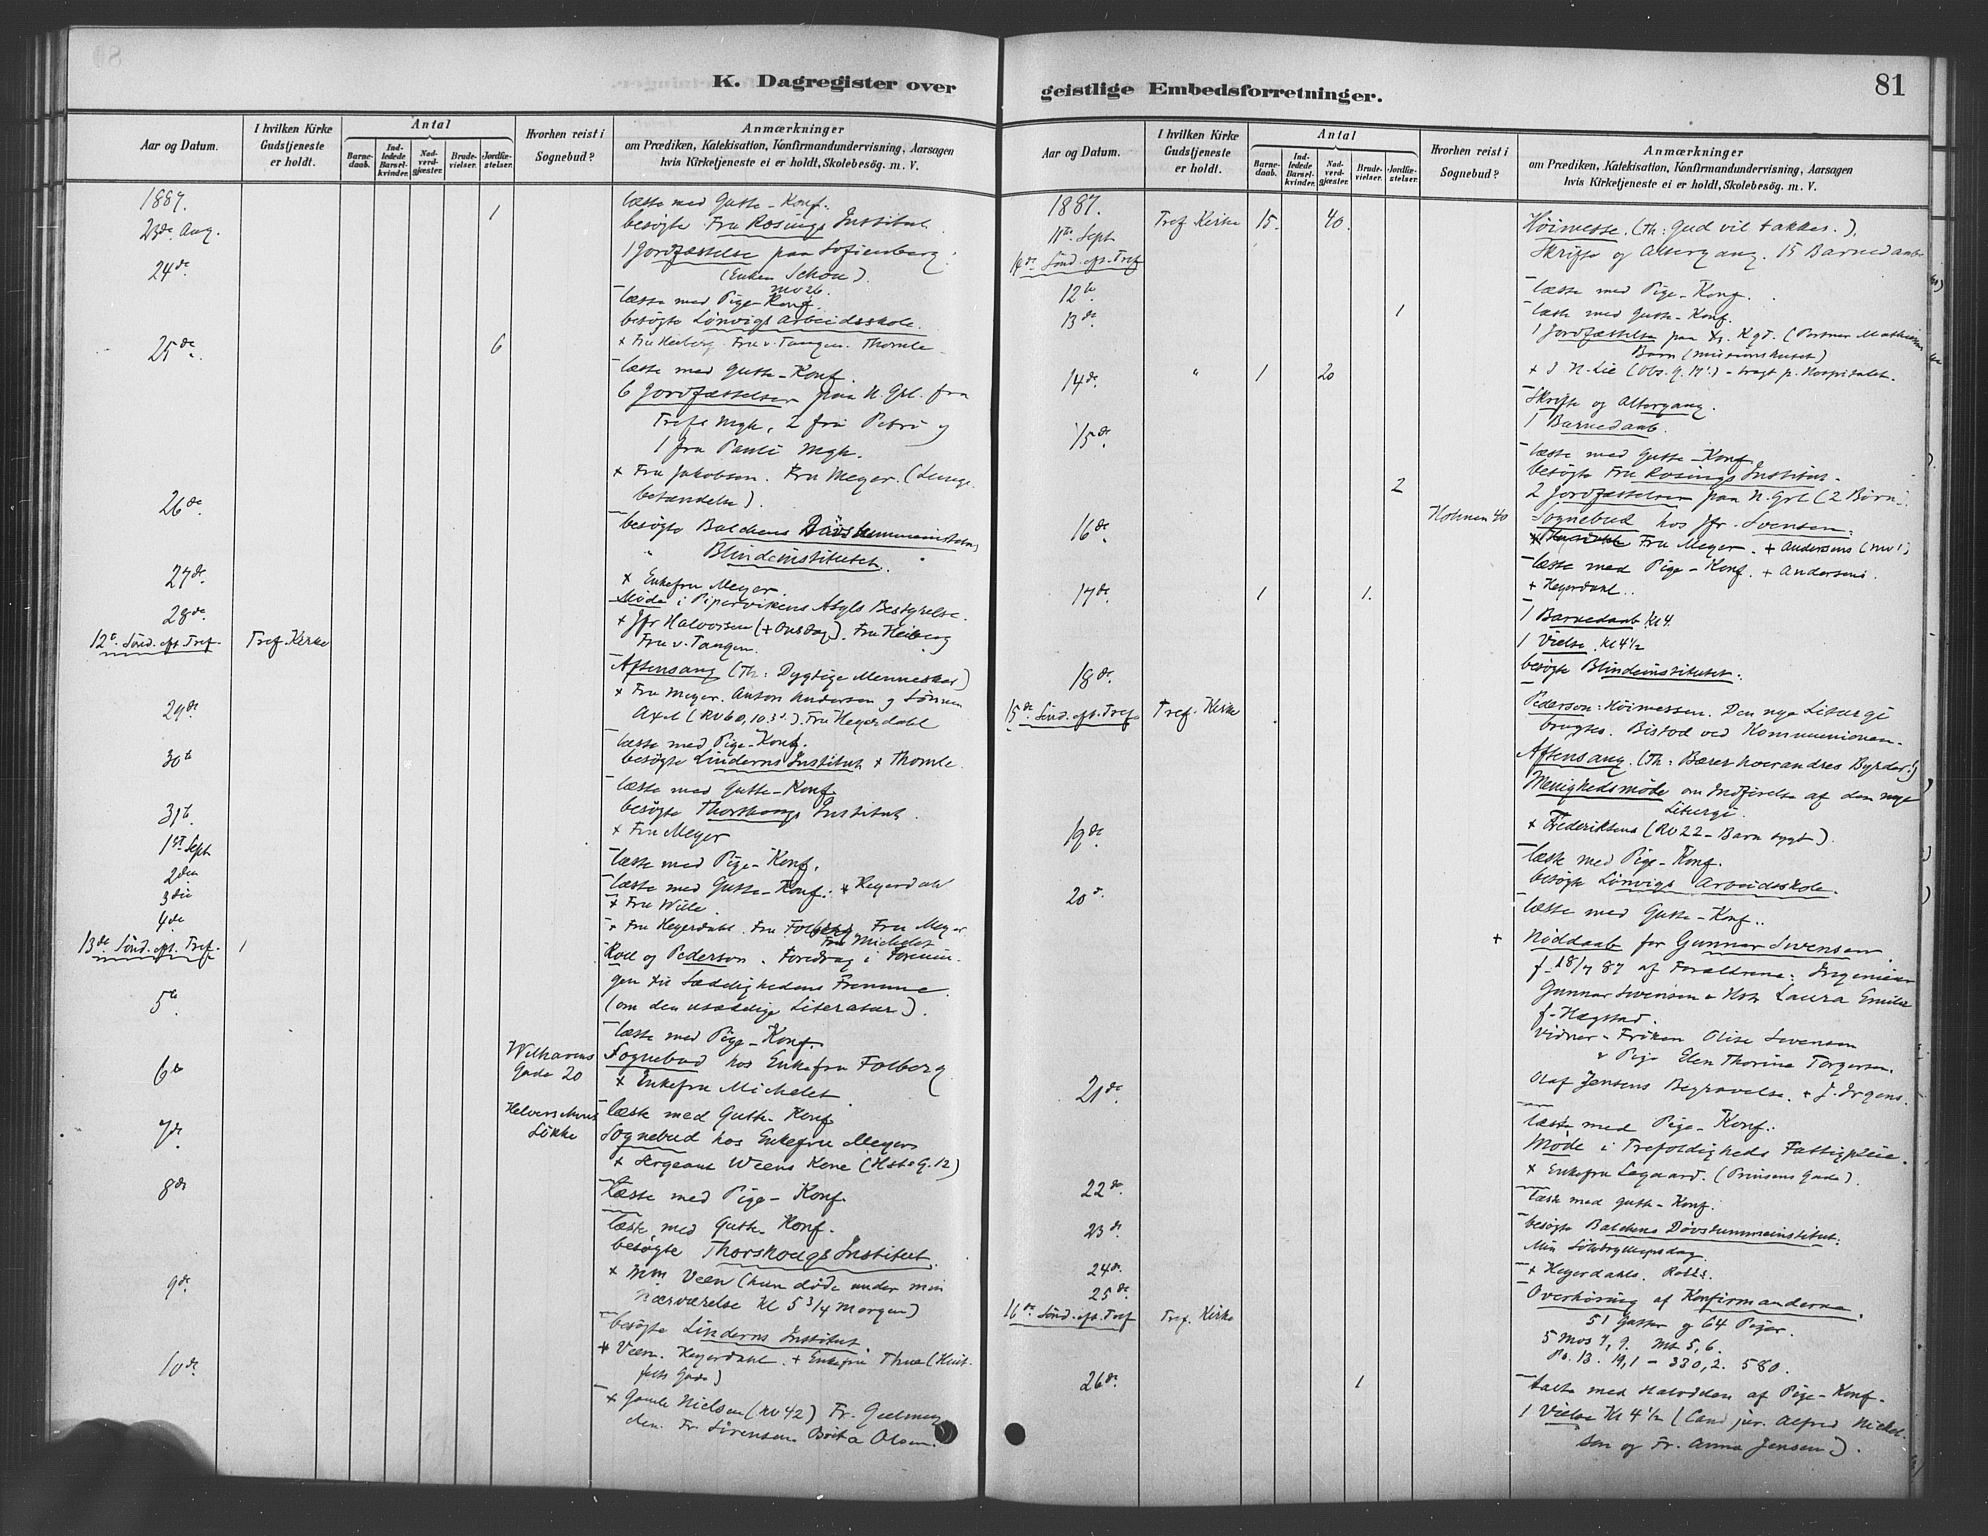 K. Dagregister over
Aar og Datum.
I hvilken Kirke Gudstjeneste er holdt.
Antal
Barnedaab.
Indledede Barselkvinder.
Nadverdgjæster.
Brudevielser.
Jordfæstelser.
Hvorhen reist i Sognebud?
Anmærkninger
om Prædiken, Katekisation, Konfirmandundervisning, Aarsagen
hvis Kirketjeneste ei er holdt, Skolebesøg. m. V.
1887.
23de Aug. 1 læste med Gutte-Konf.
besøgte Fru Rosings Institut.
1 Jordfæstelse paa Sofienberg
(Enken Schou).
24de
læste med Pige-Konf.
besøgte Lønvigs Arbeidsskole.
+ Fru Heiberg. Fru v. Tangen. Thomle.
25de 6
læste med Gutte-Konf.
6 Jordfæstelser paa N. Grl. fra
Trefs Mgh, 2 fra Petri og
1 fra Pauli Mgh.
+ Fru Jakobsen. Fru Meyer. (Lungebetændelse).
26de
besøgte Balchens Døvstummeinstitut
" Blindeinstitutet.
27de
+ Enkefru Meyer.
Møde i Pipervikens Asyls Bestyrelse.
28de
+ Jfr Halvorsen (+ Onsdag). Fru Heiberg
Fru v. Tangen.
12te Sønd. eft. Tref. Tref. Kirke
Aftensang (Th: Dygtige Mennesker)
+ Fru Meyer. Anton Andersen og Sønnen
Axel (RV60, 10.3). Fru Heyerdahl
29de
læste med Pige-Konf.
besøgte Linderns Institut + Thomle.
30te
læste med Gutte-Konf.
besøgte Thorskougs Institut.
+ Fru Meyer
31te
læste med Pige-Konf.
1ste Sept
læste med Gutte-Konf. + Heyerdahl
2den
+ Fru Wille.
3die
+ Fru Heyerdahl. Fru Folberg. Fru Meyer
Fru Michelet
4de
13de Sønd. eft. Tref.
Koll og Pederson. Foredrag i Foreningen til Sædelighedens Fremme.
(om den usædelige Literatur).
5te
læste med Pige-Konf.
Wilhavens Gade 20
Sognebud hos Enkefru Folberg
+ Enkefru Michelet.
6te
læste med Gutte-Konf.
Løkke
Sognebud hos Enkefru Meyer
7de
+ Sergeant Weens Kone (Hst. G. 12)
læste med Pige-Konf.
8de
læste med Gutte-Konf.
besøgte Thorskougs Institut.
+ Mm Veen (hun døde under min
Nærværelse Kl 5 3/4 Morgen)
9de
besøgte Linderns Institut.
+ Veen. Heyerdahl. + Enkefru Thue (Huitfelts Gade)
10de
+ Gamle Nielsen (RV42) Fr.
Fr. Sørensen. Berta Olsen.
geistlige Embedsforretninger.
81
Aar og Datum.
I hvilken Kirke Gudstjeneste er holdt.
Antal
Barnedaab.
Indledede Barselkvinder.
Nadverdgjæster.
Brudevielser.
Jordfæstelser.
Hvorhen reist i Sognebud?
Anmærkninger
om Prædiken, Katekisation, Konfirmandundervisning, Aarsagen
hvis Kirketjeneste ei er holdt, Skolebesøg. m. V.
1887.
11te Sept Tref. Kirke 15. 40.
Høimesse. (Th: Gud vil takkes.).
14de Sønd. eft. Tref
Skrifte og Altergang. 15 Barnedaab
12te
læste med Pige-Konf.
13de 1
læste med Gutte-Konf.
1 Jordfæstelse paa Kgd. (Portner Mathiesens
Barn (Missionshuset)
+ J. N. Lie – bragt p. Hospitalet.
14de " 1 20
Skrifte og Altergang.
1 Barnedaab.
15de
læste med Gutte-Konf
besøgte Fru Rosings Institut.
2
2 Jordfæstelser paa N. Grl (2 Børn).
16de Holmen 40
Sognebud hos Jfr. Svensen.
Fru Meyer. + Andersens
læste med Pige-Konf. + Andersens.
+ Heyerdahl.
17de 1 1.
1 Barnedaab Kl 4.
1 Vielse Kl 4 1/2
besøgte Blindeinstitutet.
18de
15de Sønd. eft. Tref Tref. Kirke
Pederson: Høimessen. Den nye Liturgi
brugtes. Bistod ved Kommunionen.
Aftensang. (Th: Bærer hverandres Byrder!)
Menighedsmøde om Indførelse af den nye
Liturgi.
+ Frederiksens (RV22 – Barn sygt).
19de
læste med Pige-Konf.
besøgte Lønvigs Arbeidsskole.
20de
læste med Gutte-Konf..
+ Nøddaab for Gunnar Svensen
f. 18/7 87 af Forældrene: Ingeniør
Gunnar Svensen & Hst. Laura Emilie
f. Hægstad.
Vidner – Frøken Olise Svensen
& Pige Elen Thorine Torgersen.
Olaf Jensens Begravelse. + J. Irgens.
21de
læste med Pige-Konf.
Møde i Trefoldigheds Fattigpleie.
+ Enkefru Segaard. (Prinsens Gade).
22de
læste med Gutte-Konf.
23de
besøgte Balchens Døvstummeinstitut.
Min Sølvbryllupsdag
24de
+ Heyerdahls.
25de
16de Sønd. eft. Tref Tref. Kirke
Overhøring af Konfirmanderne.
51 Gutter og 64 Piger.
5 Mos 7,9. Mt 5,6.
Ps. 13. 19,1 – 330,2. 580.
26de 1
talte med Halvdelen af Pige-Konf.
1 Vielse Kl 4 1/2 (Cand jur. Alfred Nickelsen og Fr. Anna Jensen).